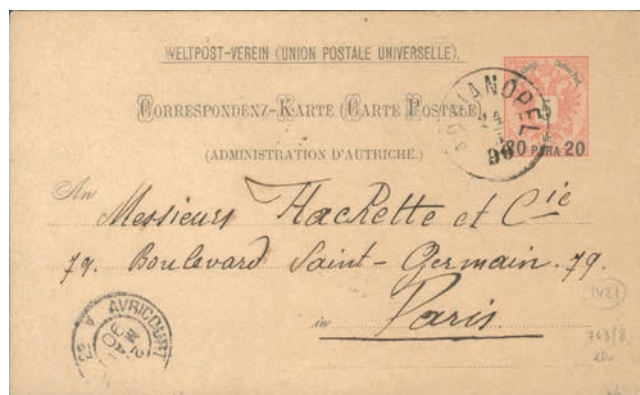 WELTPOST-VEREIN (UNION POSTALE UNIVERSELLE).
CORRESPONDENZ-KARTE (CARTE POSTALE)
(ADMINISTRATION D'AUTRICHE.)
20 PARA 20
90
An Messieurs Hachette et Cie
79. Boulevard Saint-Germain. 79.
in Paris
AVRICOURT
1421
763/8